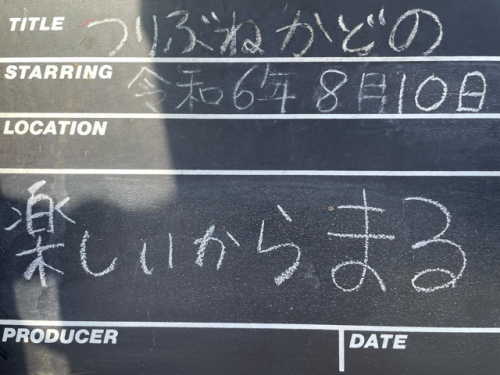 TITLE つりぶねかどの
STARRING 令和6年8月10日
LOCATION
楽しいから まる
PRODUCER DATE